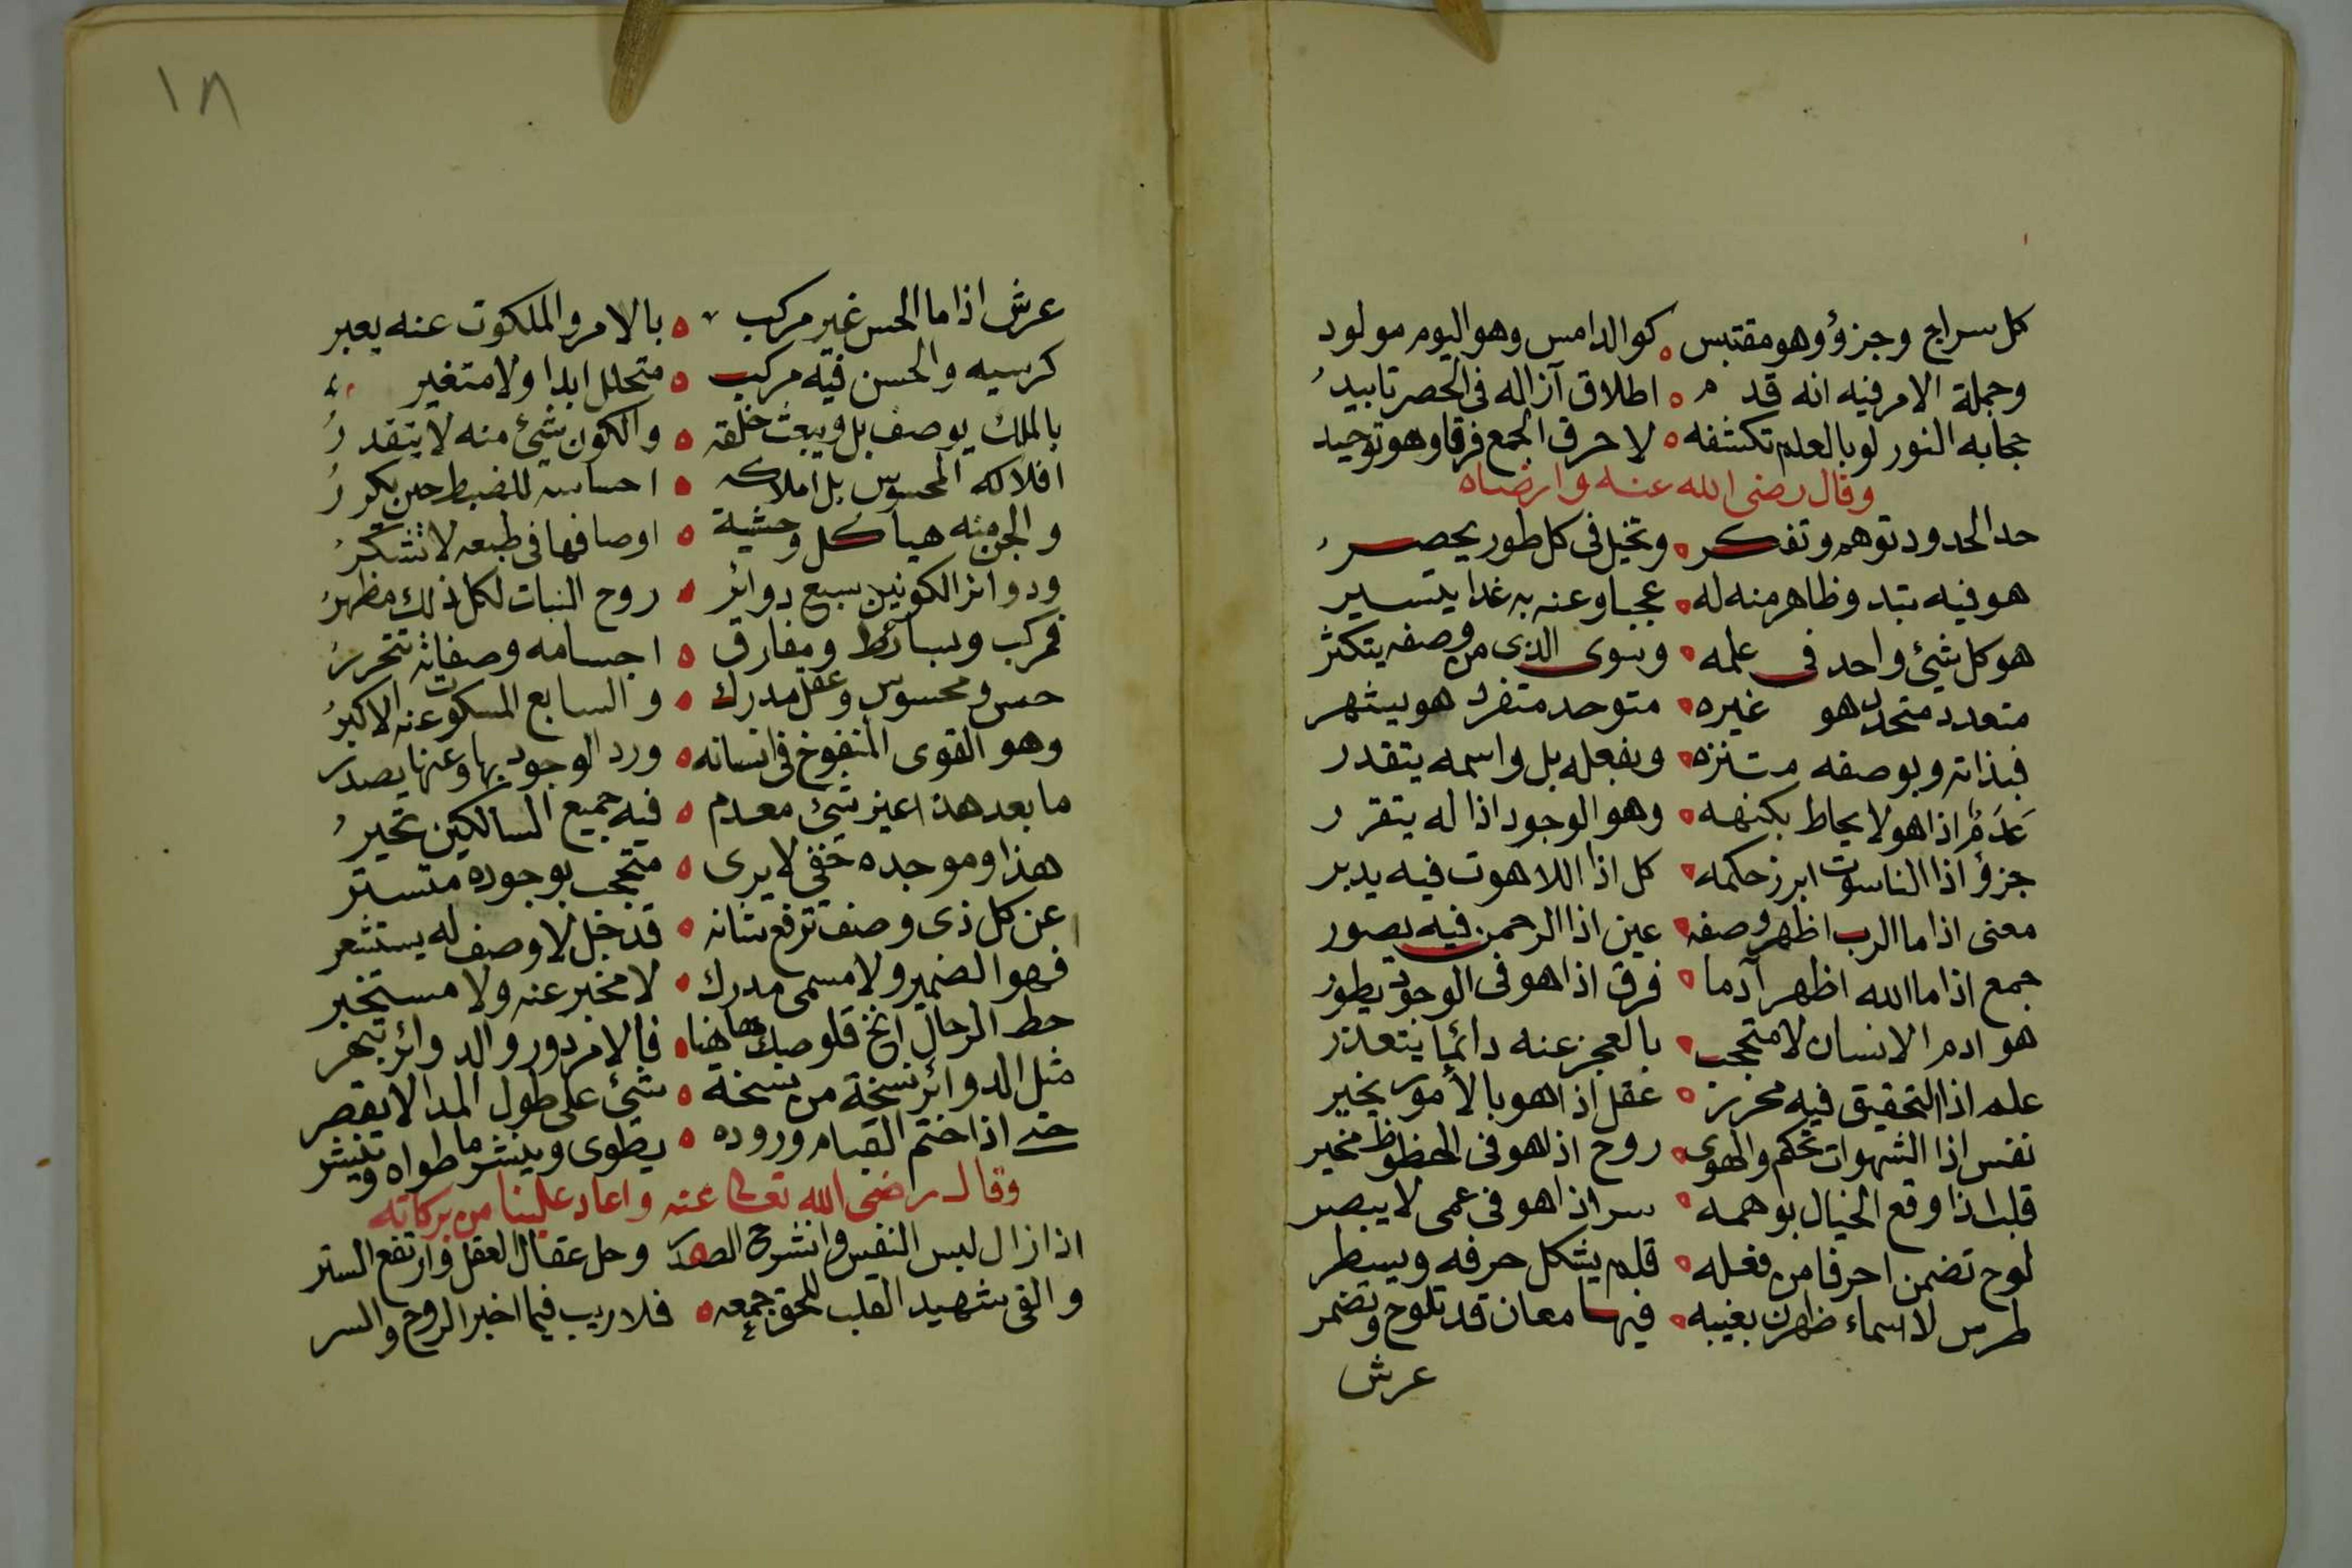 كل سراج وجزؤ وهو مقتبس ه كو الدامس وهو اليوم مولود
وجملة الامر فيه انه قدم ه اطلاق آزاله فى الحصر تابيد
حجابه النور لو بالعلم تكشفه ه لا حرق الجمع فرقا وهو توحيد
وقال رضى الله عنه وارضاه
حد الحدود توهم وتفكر ه وتخيل فى كل طور يحصر
هو فيه بتد وظاهر منه له ه عجبا وعنه به غدا يتسير
هو كل شيئ واحد فى علمه ه وسوى الذى من وصفه يتكثر
متعدد متحدد هو غيره ه متوحد متفرد هو يشهر
فبذاته وبوصفه متنزه ه وبفعله بل واسمه يتقدر
عَدَمٌ اذا هو لا يحاط بكنهه ه وهو الوجود اذا له يتقرر
جزؤ اذا الناسوت ابرز حكمه ه كل اذا اللاهوت فيه يدبر
معنى اذا ما الرب اظهر وصفه ه عين اذا الرحمن فيه يصور
جمع اذا ما الله اظهر آدما ه فرق اذا هو فى الوجود يطور
هو ادم الانسان لا متحجب ه بالعجز عنه دائما يتعذر
علم اذا التحقيق فيه محرز ه عقل اذا هو بالأمور يخير
نفس اذا الشهوات تحكم والهوى ه روح اذا هو فى الحظوظ مخير
قلب اذا وقع الخيال بوهمه ه سر اذا هو فى عمى لا يبصر
لوح تضمن احرفا من فعله ه قلم يشكل حرفه ويسطر
طرس لاسماء ظهرن بغيبه ه فيها معان قد تلوح وتضمر
عرش
١٨
عرش اذا ما الحس غير مركب ه بالامر والملكوت عنه يعبر
كرسيه والحسن فيه مركب ه متحلل ابدا ولا متغير
بالملك يوصف بل ويبعث خلقه ه والكون شيئ منه لا يتقدر
افلاكه المحسوس بل املاكه ه احساسه للضبط حين يكرر
والجن منه هياكل وحشية ه اوصافها فى طبعه لا تشكر
ودوائر الكونين سبع دوائر ه روح النبات لكل ذلك مظهر
فمركب وبسائط ومفارق ه اجسامه وصفاته تتحرر
حس ومحسوس وعقل مدرك ه والسابع المسكوت عنه الاكبر
وهو القوى المنفوخ فى انسانه ه ورد الوجود بها وعنها يصدر
ما بعد هذا غير شيئ معدم ه فيه جميع السالكين تحير
هذا وموجده خفى لا يرى ه متحجب بوجوده متستر
عن كل ذى وصف ترفع شانه ه قد جل لا وصف له يستشعر
فهو الضمير ولا مسمى مدرك ه لا مخبر عنه ولا مستخبر
حط الرحال انخ قلوصك هاهنا ه فالامر دور والدوائر تبهر
مثل الدوائر نسخة من نسخة ه شيئ على طول المدا لا يقصر
حتى اذا ختم القيام وروده ه يطوى وينشر ما طواه وينشر
وقال رضى الله تعالى عنه واعاد علينا من بركاته
اذا زال لبس النفس وانشرح الصدر وحل عقال العقل وارتفع الستر
والقى شهيد القلب للحق جمعه ه فلا ريب فيما اخبر الروح والسر